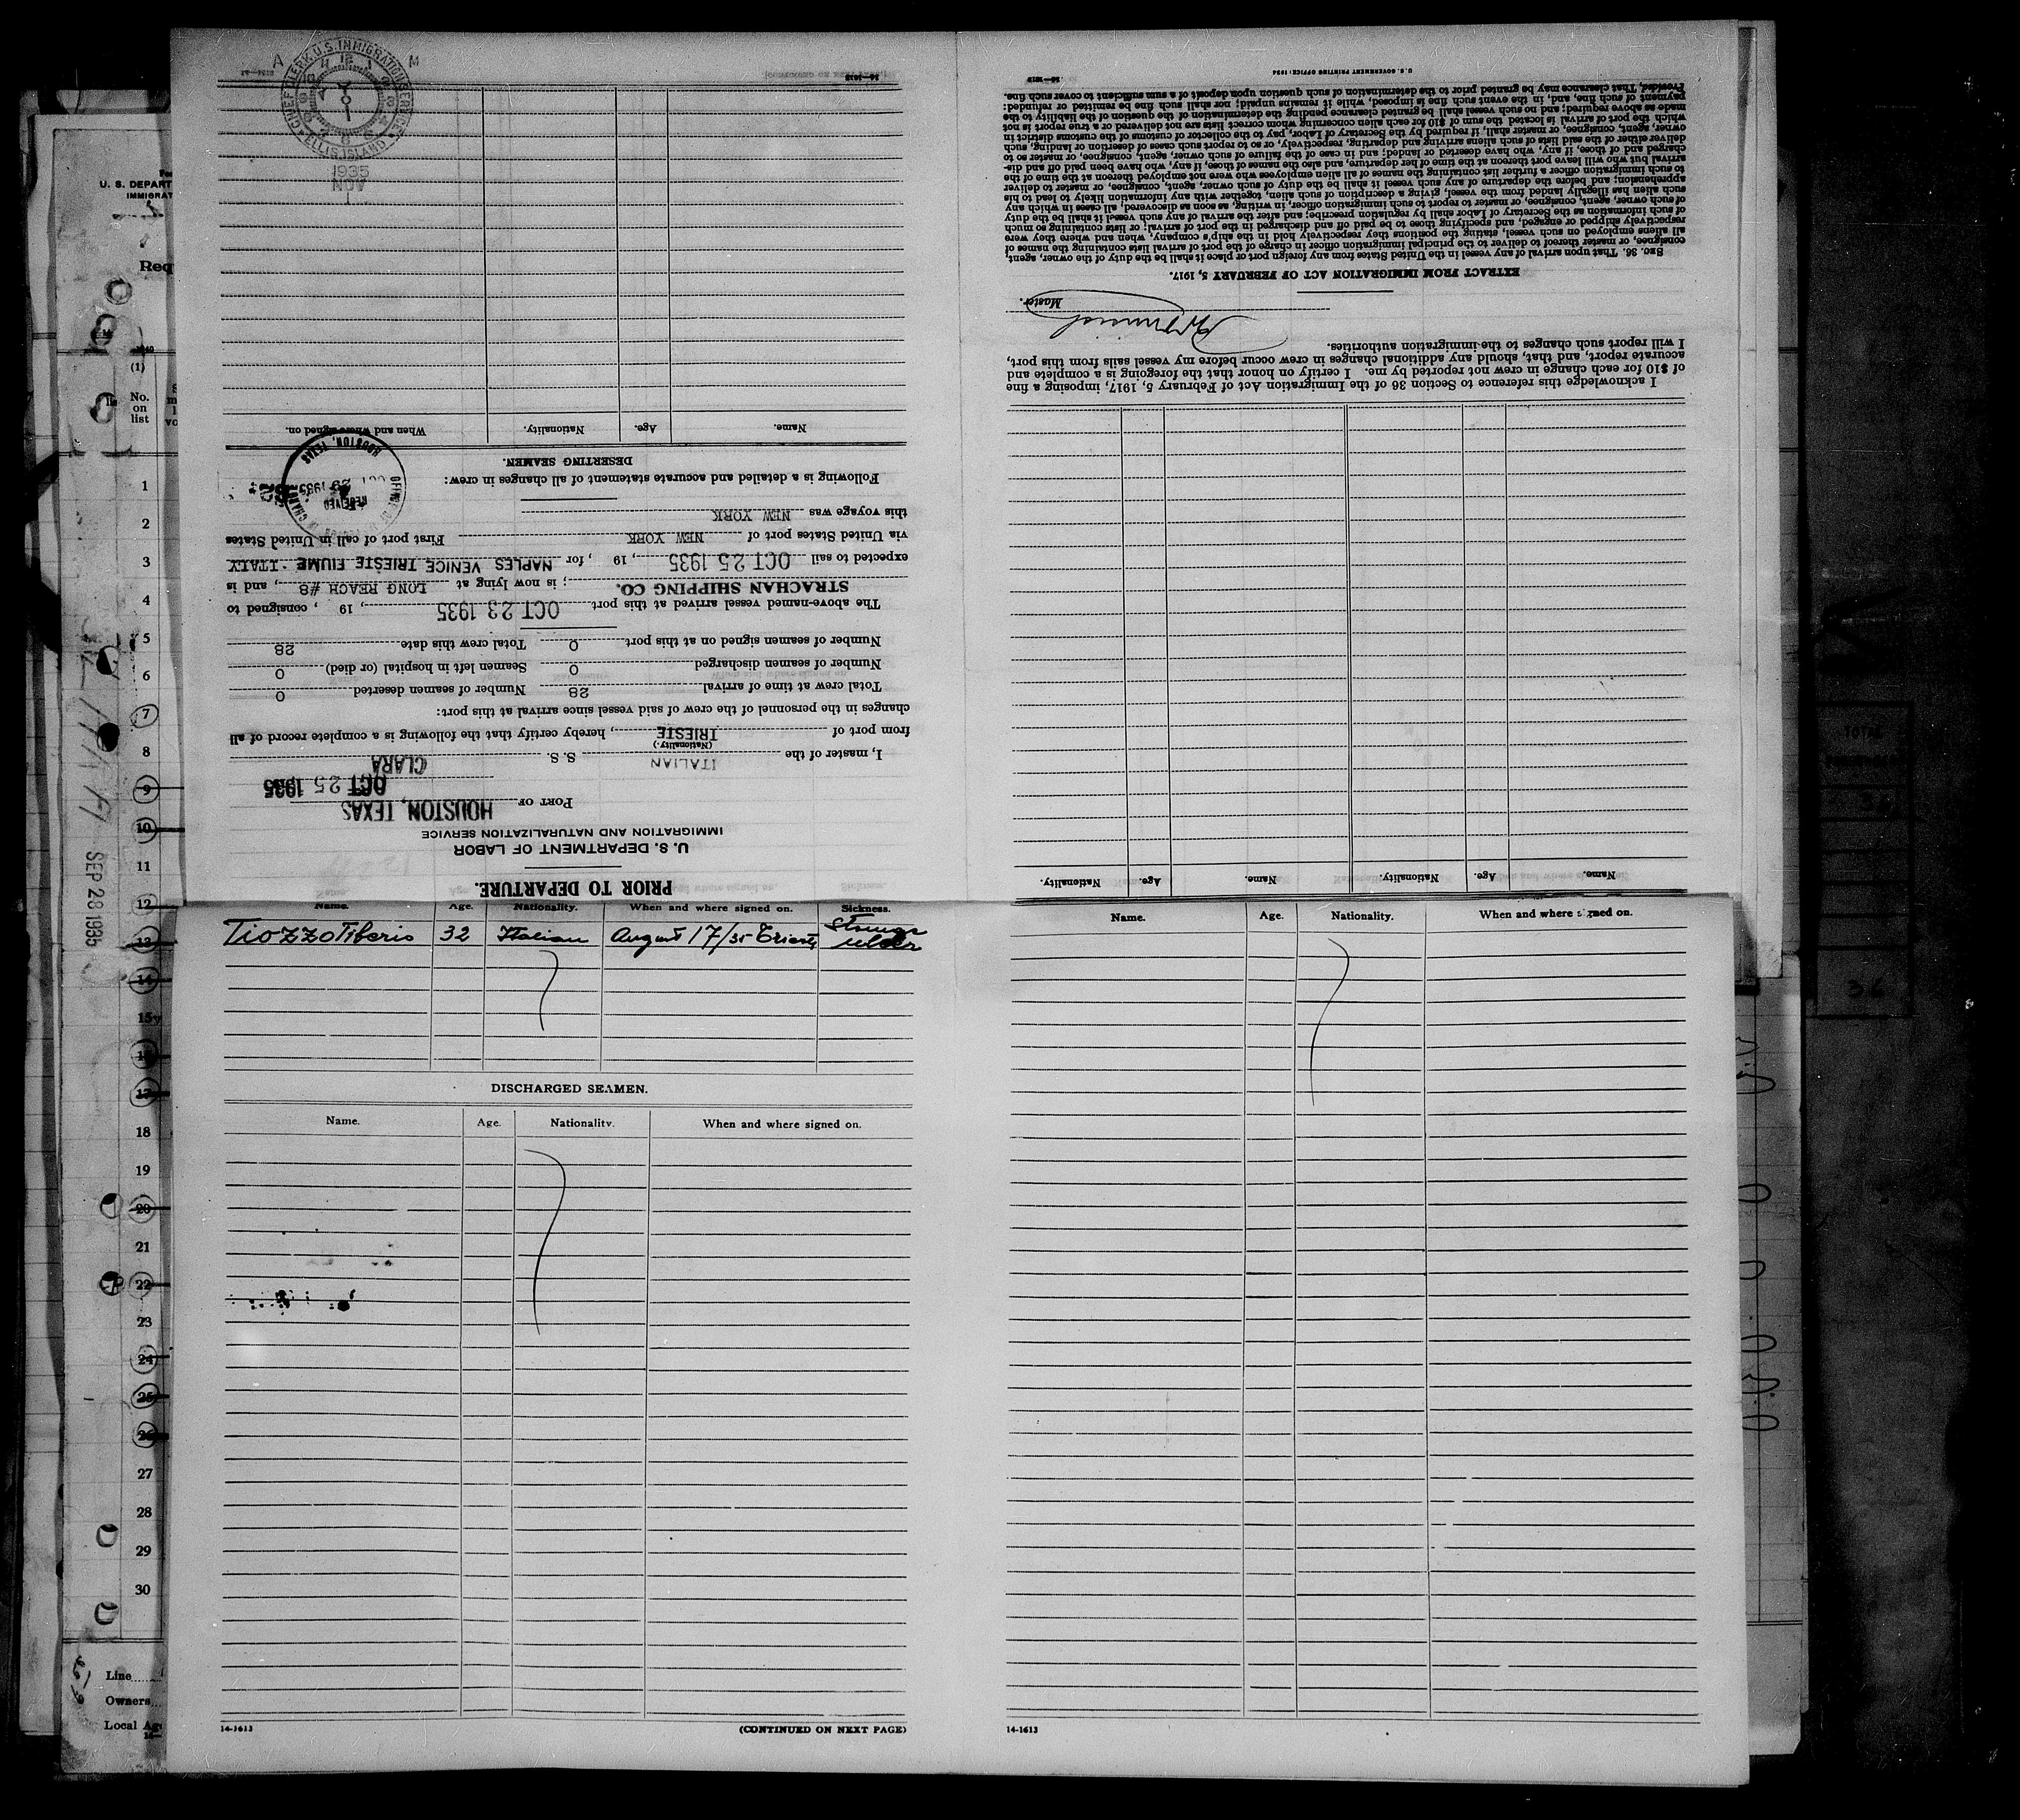 PRIOR TO DEPARTURE.
U. S. DEPARTMENT OF LABOR
IMMIGRATION AND NATURALIZATION SERVICE
PORT OF HOUSTON, TEXAS
OCT 25 1935
I, master of the ITALIAN S. S. CLARA
(Nationality.)
from port of TRIESTE, hereby certify that the following is a complete record of all
changes in the personnel of the crew of said vessel since arrival at this port:
Total crew at time of arrival 28 Number of seamen deserted 0
Number of seamen discharged 0 Seamen left in hospital (or died) 0
Number of seamen signed on at this port 0 Total crew this date 28
The above-named vessel arrived at this port OCT 23 1935, 19 , consigned to
STRACHAN SHIPPING CO. ; is now lying at LONG REACH #8, and is
expected to sail OCT 25 1935, 19 , for NAPLES VENICE TRIESTE FIUME - ITALY
via United States port of NEW YORK First port of call in United States
this voyage was NEW YORK
Following is a detailed and accurate statement of all changes in crew:
RECEIVED
OCT 29 1935
HOUSTON, TEXAS
DESERTING SEAMEN.
Name. Age. Nationality. When and where signed on.
CHIEF CLERK U.S. IMMIGRATION SERVICE
ELLIS ISLAND
A M
1935
NOV
1
Name. Age. Nationality. Name. Age. Nationality.
I acknowledge this reference to Section 36 of the Immigration Act of February 5, 1917, imposing a fine
of $10 for each change in crew not reported by me. I certify on honor that the foregoing is a complete and
accurate report, and that, should any additional changes in crew occur before my vessel sails from this port,
I will report such changes to the immigration authorities.
Master.
EXTRACT FROM IMMIGRATION ACT OF FEBRUARY 5, 1917.
SEC. 36. That upon arrival of any vessel in the United States from any foreign port or place it shall be the duty of the owner, agent,
consignee, or master thereof to deliver to the principal immigration officer in charge of the port of arrival lists containing the names of
all aliens employed on such vessel, stating the positions they respectively hold in the ship's company, when and where they were
respectively shipped or engaged, and specifying those to be paid off and discharged in the port of arrival; or lists containing so much
of such information as the Secretary of Labor shall by regulation prescribe; and after the arrival of any such vessel it shall be the duty
of such owner, agent, consignee, or master to report to such immigration officer, in writing, as soon as discovered, all cases in which any
such alien has illegally landed from the vessel, giving a description of such alien, together with any information likely to lead to his
apprehension; and before the departure of any such vessel it shall be the duty of such owner, agent, consignee, or master to deliver
to such immigration officer a further list containing the names of all alien employees who were not employed thereon at the time of the
arrival but who will leave port thereon at the time of her departure, and also the names of those, if any, who have been paid off and dis-
charged and of those, if any, who have deserted or landed; and in case of the failure of such owner, agent, consignee, or master so to
deliver either of the said lists of such aliens arriving and departing, respectively, or so to report such cases of desertion or landing, such
owner, agent, consignee, or master shall, if required by the Secretary of Labor, pay to the collector of customs of the customs district in
which the port of arrival is located the sum of $10 for each alien concerning whom correct lists are not delivered or a true report is not
made as above required; and no such vessel shall be granted clearance pending the determination of the question of the liability to the
payment of such fine, and, in the event such fine is imposed, while it remains unpaid; nor shall such fine be remitted or refunded:
Provided, That clearance may be granted prior to the determination of such question upon deposit of a sum sufficient to cover such fine.
U. S. GOVERNMENT PRINTING OFFICE: 1934
Name. Age. Nationality. When and where signed on. Sickness.
Tiozzo Tiberio 32 Italian August 17/35 Trieste
DISCHARGED SEAMEN.
Name. Age. Nationality. When and where signed on.
14-1613 (CONTINUED ON NEXT PAGE)
Name. Age. Nationality. When and where signed on.
14-1613
U. S. DEPART
IMMIGRAT
Req
(1)
No.
on
list
1
2
3
4
5
6
7
8
9
10
11
12
13
14
15
16
17
18
19
20
21
22
23
24
25
26
27
28
29
30
SEP 28 1935
Line
Owners
Local Ag
TOTAL
36